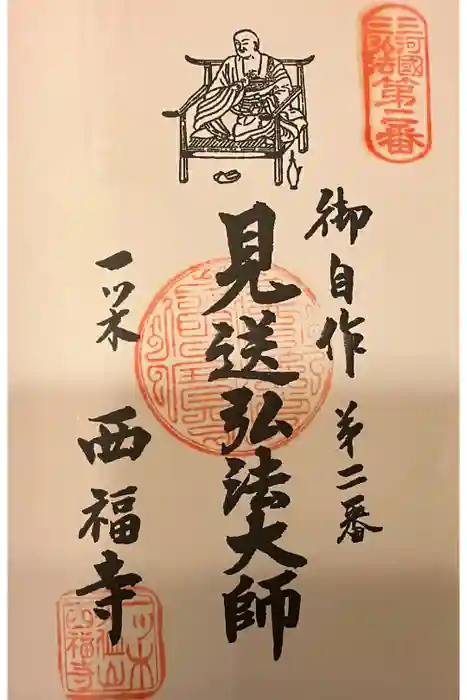 三河國
三弘法
第二番
御自作 第二番
見送弘法大師
一ツ木
西福寺
一ツ木
西福寺